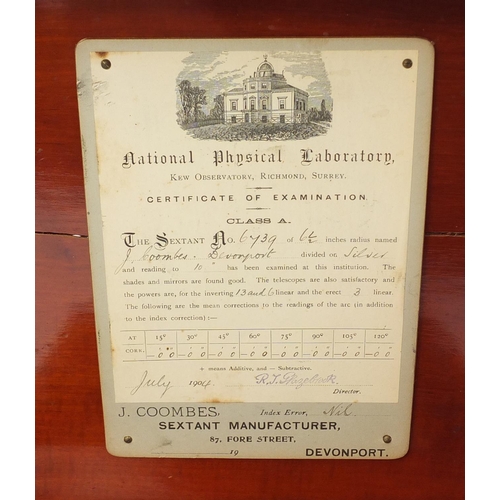 National Physical Laboratory,
Kew Observatory, Richmond, Surrey.
CERTIFICATE OF EXAMINATION.
CLASS A.
The Sextant No. 6739 of 6½ inches radius named
J. Coombes. Devonport divided on Silver
and reading to 10" has been examined at this institution. The
shades and mirrors are found good. The telescopes are also satisfactory and
the powers are, for the inverting 13 and 6 linear and the erect 3 linear.
The following are the mean corrections in the readings of the arc (in addition
to the index correction) :—
AT 15° 30° 45° 60° 75° 90° 105° 120°
CORR.
+ means Additive, and − Subtractive.
July 1904
Director.
J. COOMBES, Index Error, Nil.
SEXTANT MANUFACTURER,
87, FORE STREET,
19 DEVONPORT.